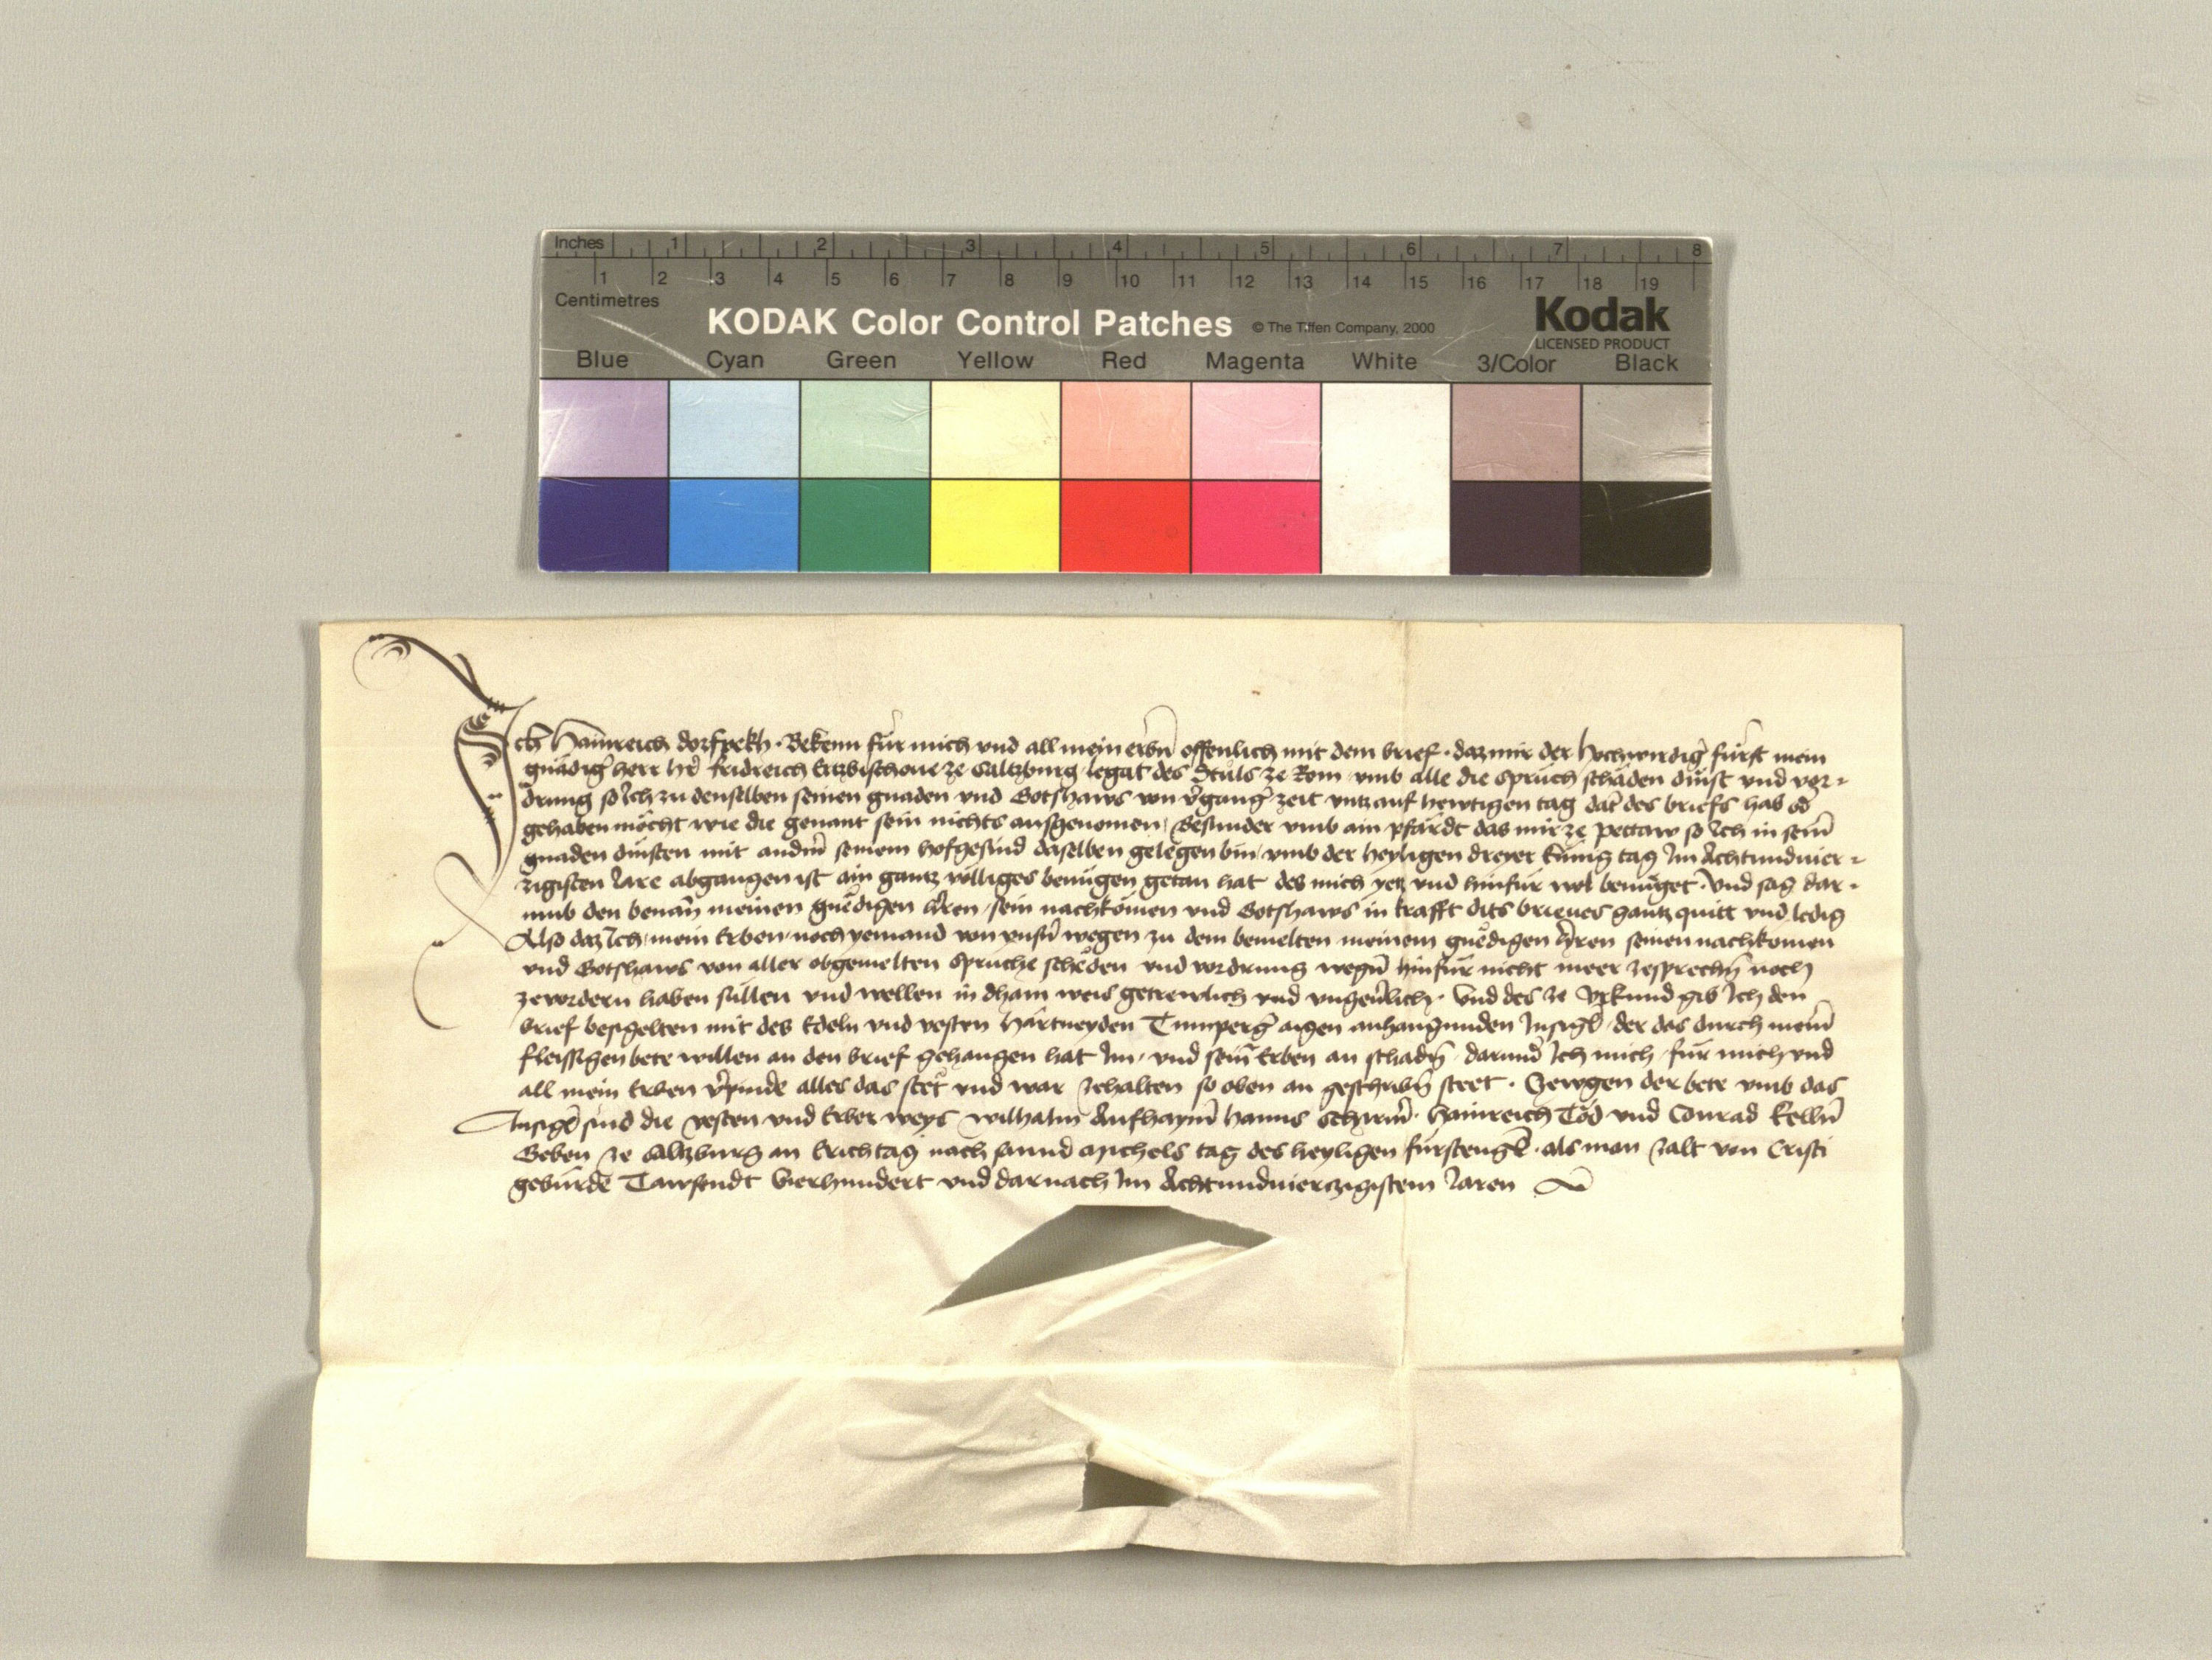 Inches 1 2 3 4 5 6 7 8
1 2 3 4 5 6 7 8 9 10 11 12 13 14 15 16 17 18 19
Centimetres
KODAK Color Control Patches © The Tiffen Company, 2000 Kodak
LICENSED PRODUCT
Blue Cyan Green Yellow Red Magenta White 3/Color Black
Ich Hainreich dorfpekh. Bekenn für mich vnd all mein erbn̄ offenlich mit dem brief. daz mir der hochwirdig fürst mein
gnädig herr her fridreich Ertzbischoue ze Saltzburg legat des Stuls ze Rom vmb alle die sprüch schäden dinst vnd vor-
drung so Ich zu denselben seinen gnaden vnd Gotshaws von vgang zeit vntz auf hewtigen tag dat des briefs hab od
gehaben möcht wie die genant sein nichts ausgenomen, Besunder vmb ain pfärdt das mir ze pettaw so Ich in sein̄
gnaden dinsten mit andn̄ seinem hofgesind daselben gelegen bin vmb der heyligen dreyer künig tag Im Achtundvier-
zigisten Jare abgangen ist ain gantz völliges benügen getan hat des mich yetz vnd hinfür wol benüget. Vnd sag dar-
umb den benan̄ meinen gnedigen hren sein nachkomen vnd Gotshaws in krafft dits brieues gantz quitt vnd ledig
Also daz Ich mein Erben noch yemand von vnsn̄ wegen zu dem bemelten meinem gnedigen hren seinen nachkomen
vnd Gotshaws von aller obgemelten sprüche scheden vnd vordrung wegn̄ hinfür nicht meer zesprechn̄ noch
zevordern haben süllen vnd wellen in dhain weis getrewlich vnd vngeuerlich. Vnd des ze Vrkund gib Ich den
brief besigelten mit des Edeln vnd vesten Hartneyden Tumperg aigen anhangunden Insigl der das durch mein̄
fleissigen bete willen an den brief gehangen hat Im, vnd sein̄ Erben an schadn̄ darund Ich mich für mich vnd
all mein Erben vpinde alles das stet vnd war zehalten so oben an geschribn̄ steet. Gezewgen der bete vmb das
Insigl sind die vesten vnd Erber weys Wilhalm Aufhaym̄ Hanns Schirm̄. Hainreich Töd vnd Conrad
Geben ze Saltzburg an Erichtag nach sannd Michels tag des heyligen fürstengl. als man zalt von Cristi
gebürde Tawsendt Vierhundert vnd darnach Im Achtundvierczigistem Jaren